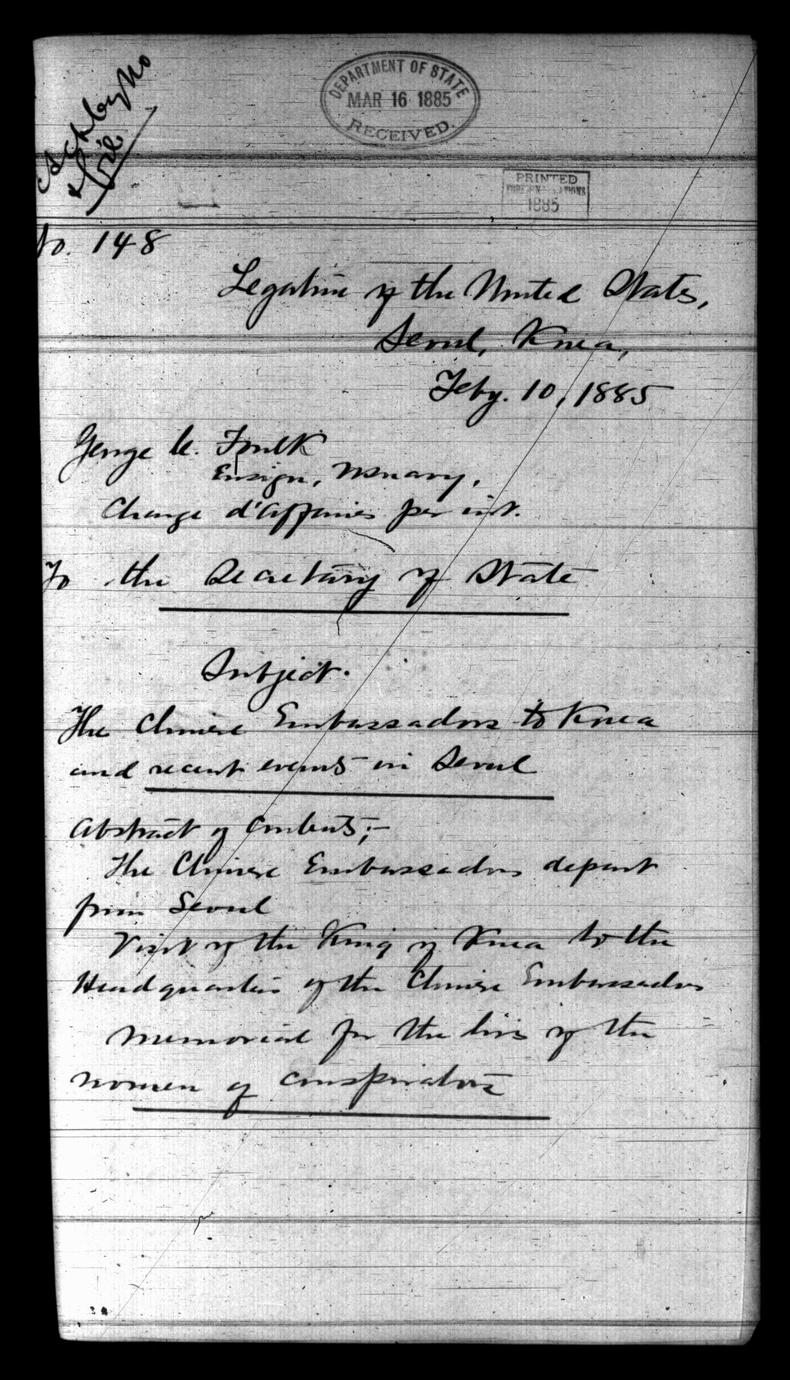 DEPARTMENT OF STATE
MAR 16 1885
RECEIVED.
PRINTED
1885
No. 148
Legation of the United States,
Seoul, Korea,
Feby. 10, 1885
George C. Foulk
Ensign, U.S. Navy,
Charge d'affaires per int.
To the Secretary of State
Subject.
The Chinese Embassadors to Korea
and recent events in Seoul
Abstract of Contents;-
The Chinese Embassadors depart
from Seoul
Visit of the King of Korea to the
Headquarters of the Chinese Embassadors
Memorial for the lives of the
women of conspirators